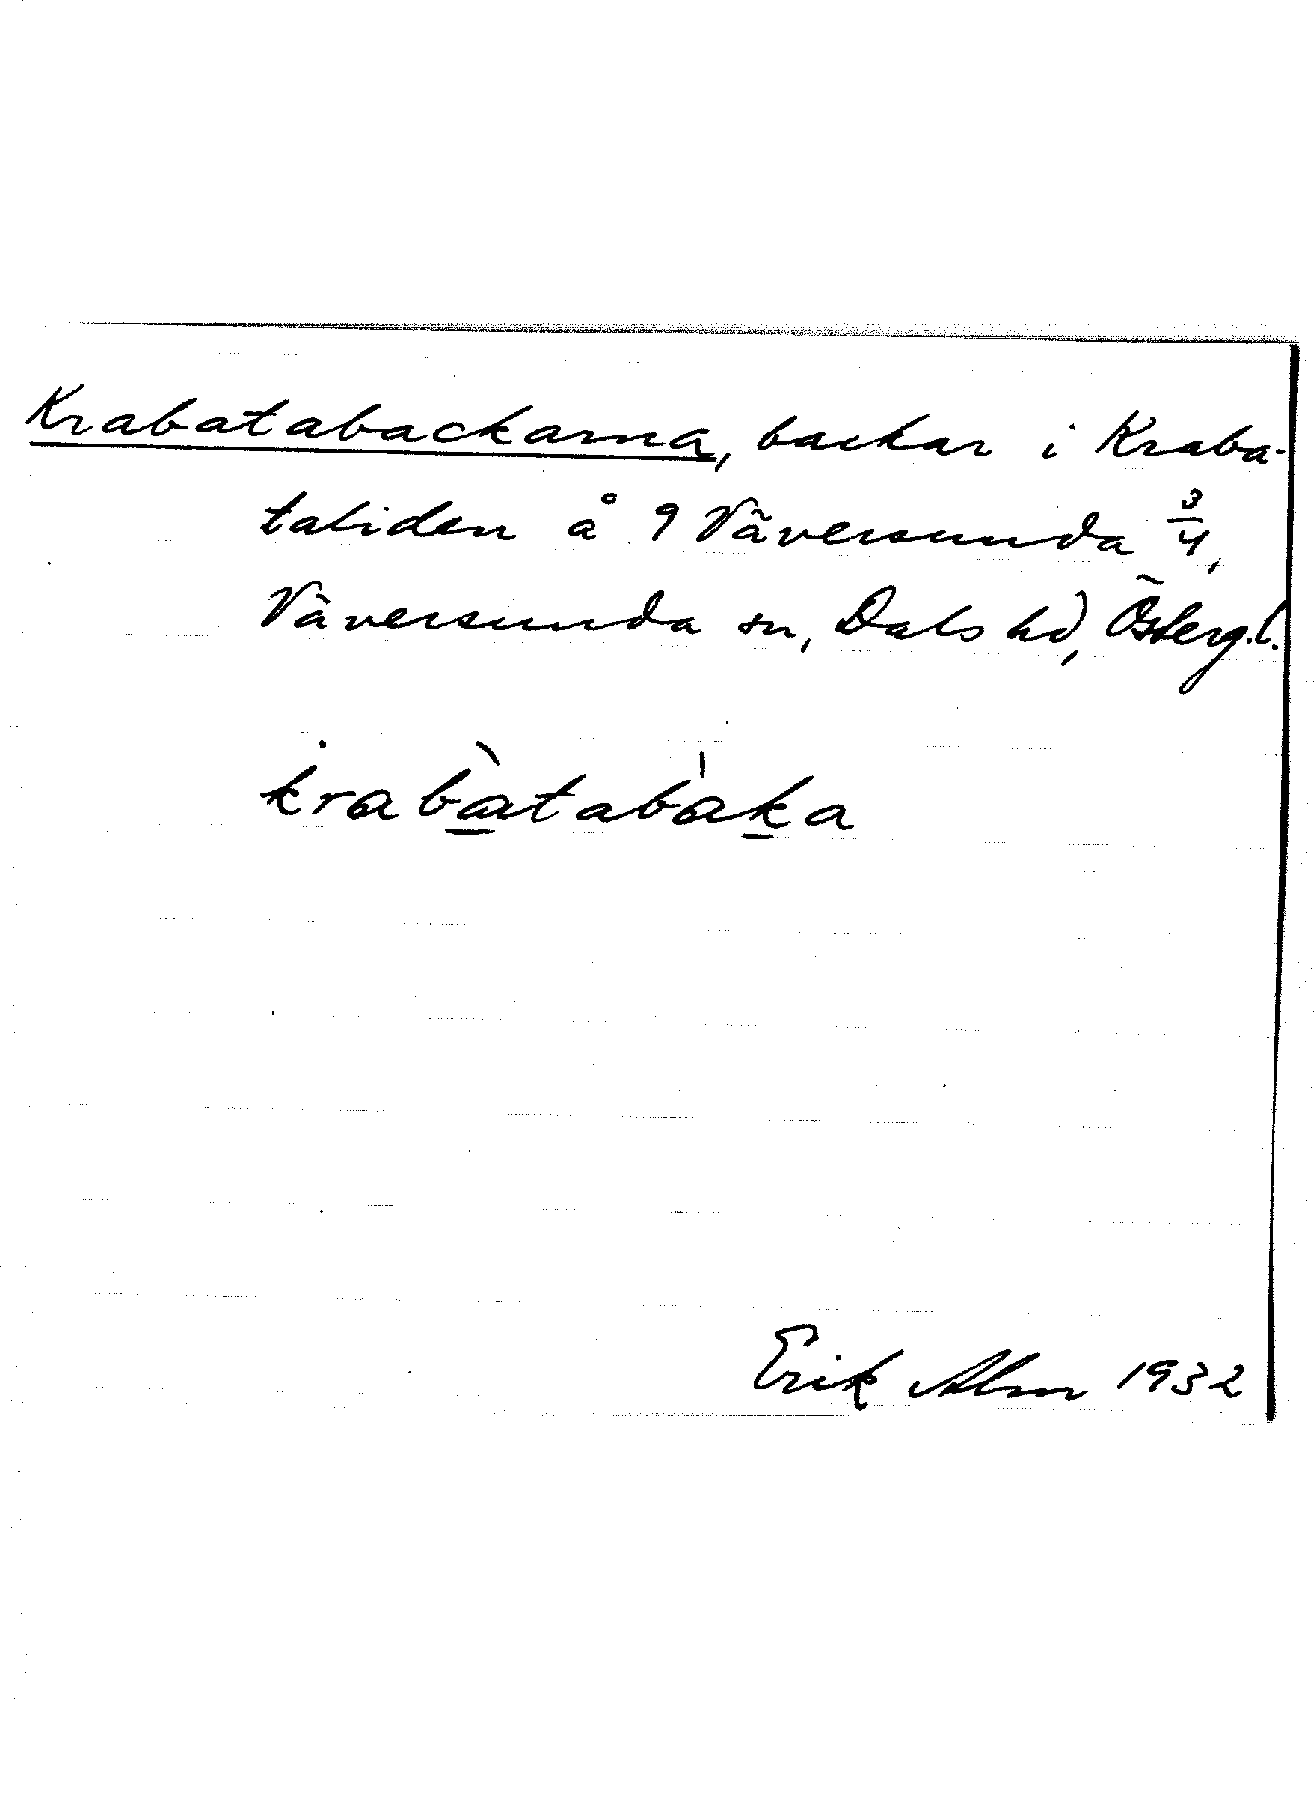 Krabatabackarna, backar i Kraba-
taliden å 9 Väversunda 3/4,
Väversunda sn, Dals hd, Österg.l.
krabàtabàka
Erik Alm 1932